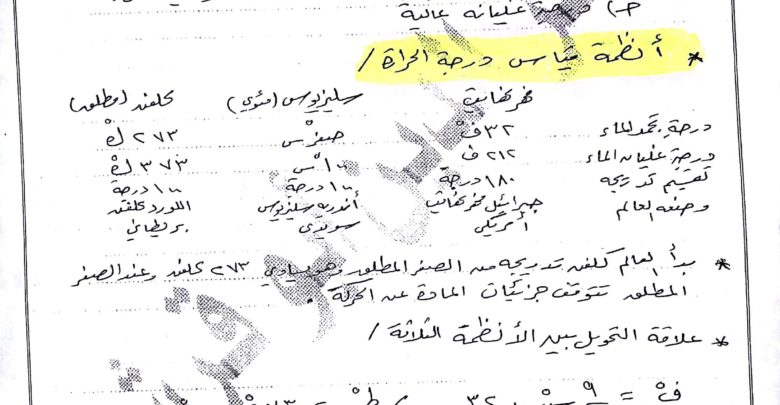 جـ) درجة غليانه عالية
* أنظمة قياس درجة الحرارة /
فهرنهايت سليزيوس (مئوي) كلفن (مطلق)
درجة تجمد الماء ٣٢ ف° صفر°س ٢٧٣ ك°
درجة غليان الماء ٢١٢ ف ١٠٠°س ٣٧٣ ك°
تقسيم تدريجه ١٨٠ درجة ١٠٠ درجة ١٠٠ درجة
وضعه العالم جبرائيل فهرنهايت أندريه سليزيوس اللورد كلفن
أمريكي سويدي بريطاني
* بدأ العالم كلفن تدريجه من الصفر المطلق وهو يساوي ٢٧٣ كلفن وعند الصفر
المطلق تتوقف جزيئات المادة عن الحركة .
* علاقة التحويل بين الأنظمة الثلاثة /
ف° = ٩ س° ٣٢